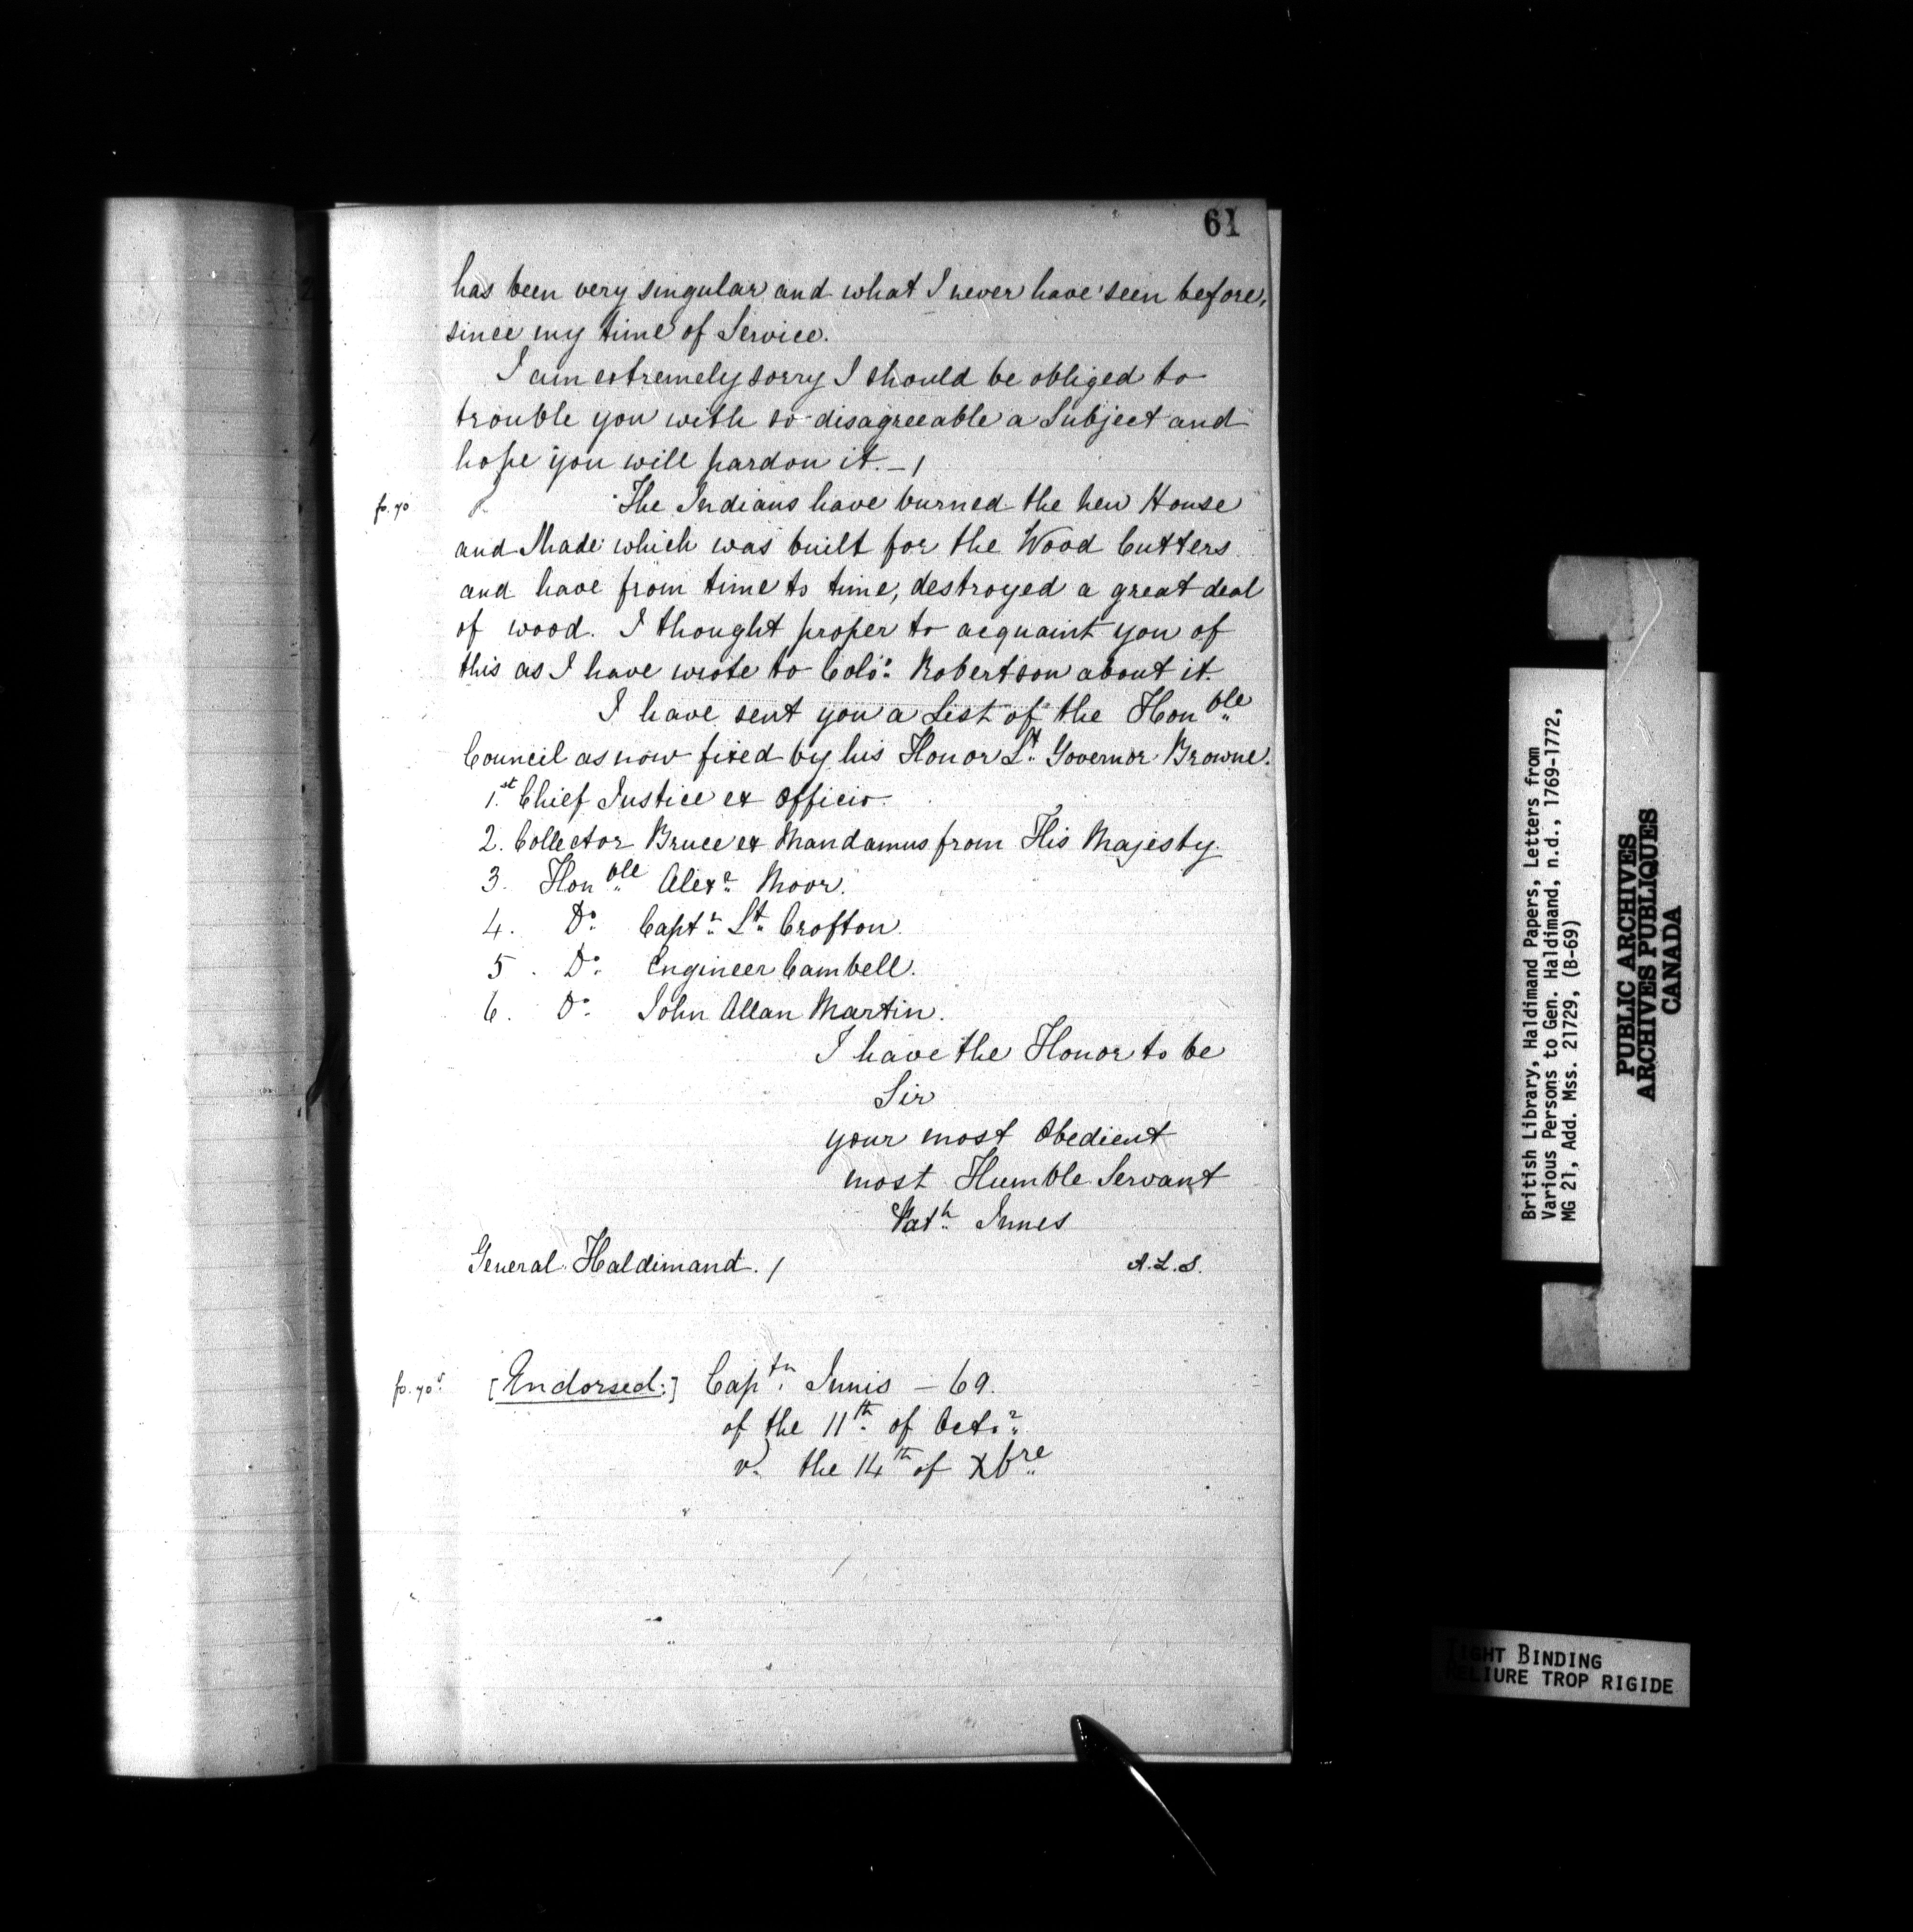 61
has been very singular and what I never have seen before,
since my time of Service.
I am extremely sorry I should be obliged to
trouble you with so disagreeable a Subject and
hope you will pardon it. — /
fo. 70
The Indians have burned the new House
and Shade which was built for the Wood Cutters
and have from time to time, destroyed a great deal
of wood. I thought proper to acquaint you of
this as I have wrote to Colo: Robertson about it.
I have sent you a List of the Honble
Council as now fixed by his Honor Lt. Governor Browne.
1.st Chief Justice ex Officio.
2. Collector Bruce ex Mandamus from His Majesty.
3. Honble Alexr Moor.
4. Do Captn Lt Crofton.
5. Do Engineer Cambell.
6. Do John Allan Martin.
I have the Honor to be
Sir
your most Obedient
most Humble Servant
Innes
General Haldimand. /
A.L.S.
fo. 70v.
[Endorsed:] Captn. Innis — 69.
of the 11th of Octor
the 14th of Xbre
British Library, Haldimand Papers, Letters from
Various Persons to Gen. Haldimand, n.d., 1769-1772,
MG 21, Add. Mss. 21729, (B-69)
PUBLIC ARCHIVES
ARCHIVES PUBLIQUES
CANADA
TIGHT BINDING
RELIURE TROP RIGIDE